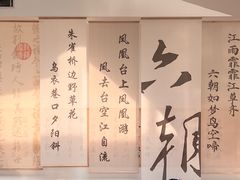 江雨霏霏江草齐
六朝如梦鸟空啼
六朝
凤凰台上凤凰游
凤去台空江自流
朱雀桥边野草花
乌衣巷口夕阳斜